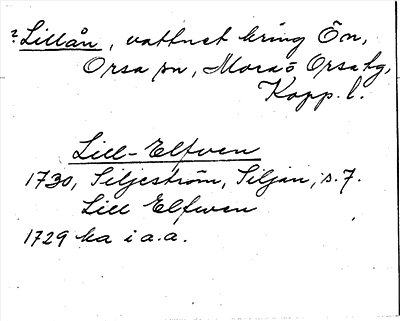 ? Lillån, vattnet kring Ön,
Orsa sn, Mora o Orsa tg,
Kopp. l.
Lill-Elfven
1730, Siljeström, Siljan, s. 7.
Lill Elfwen
1729 ka i a.a.